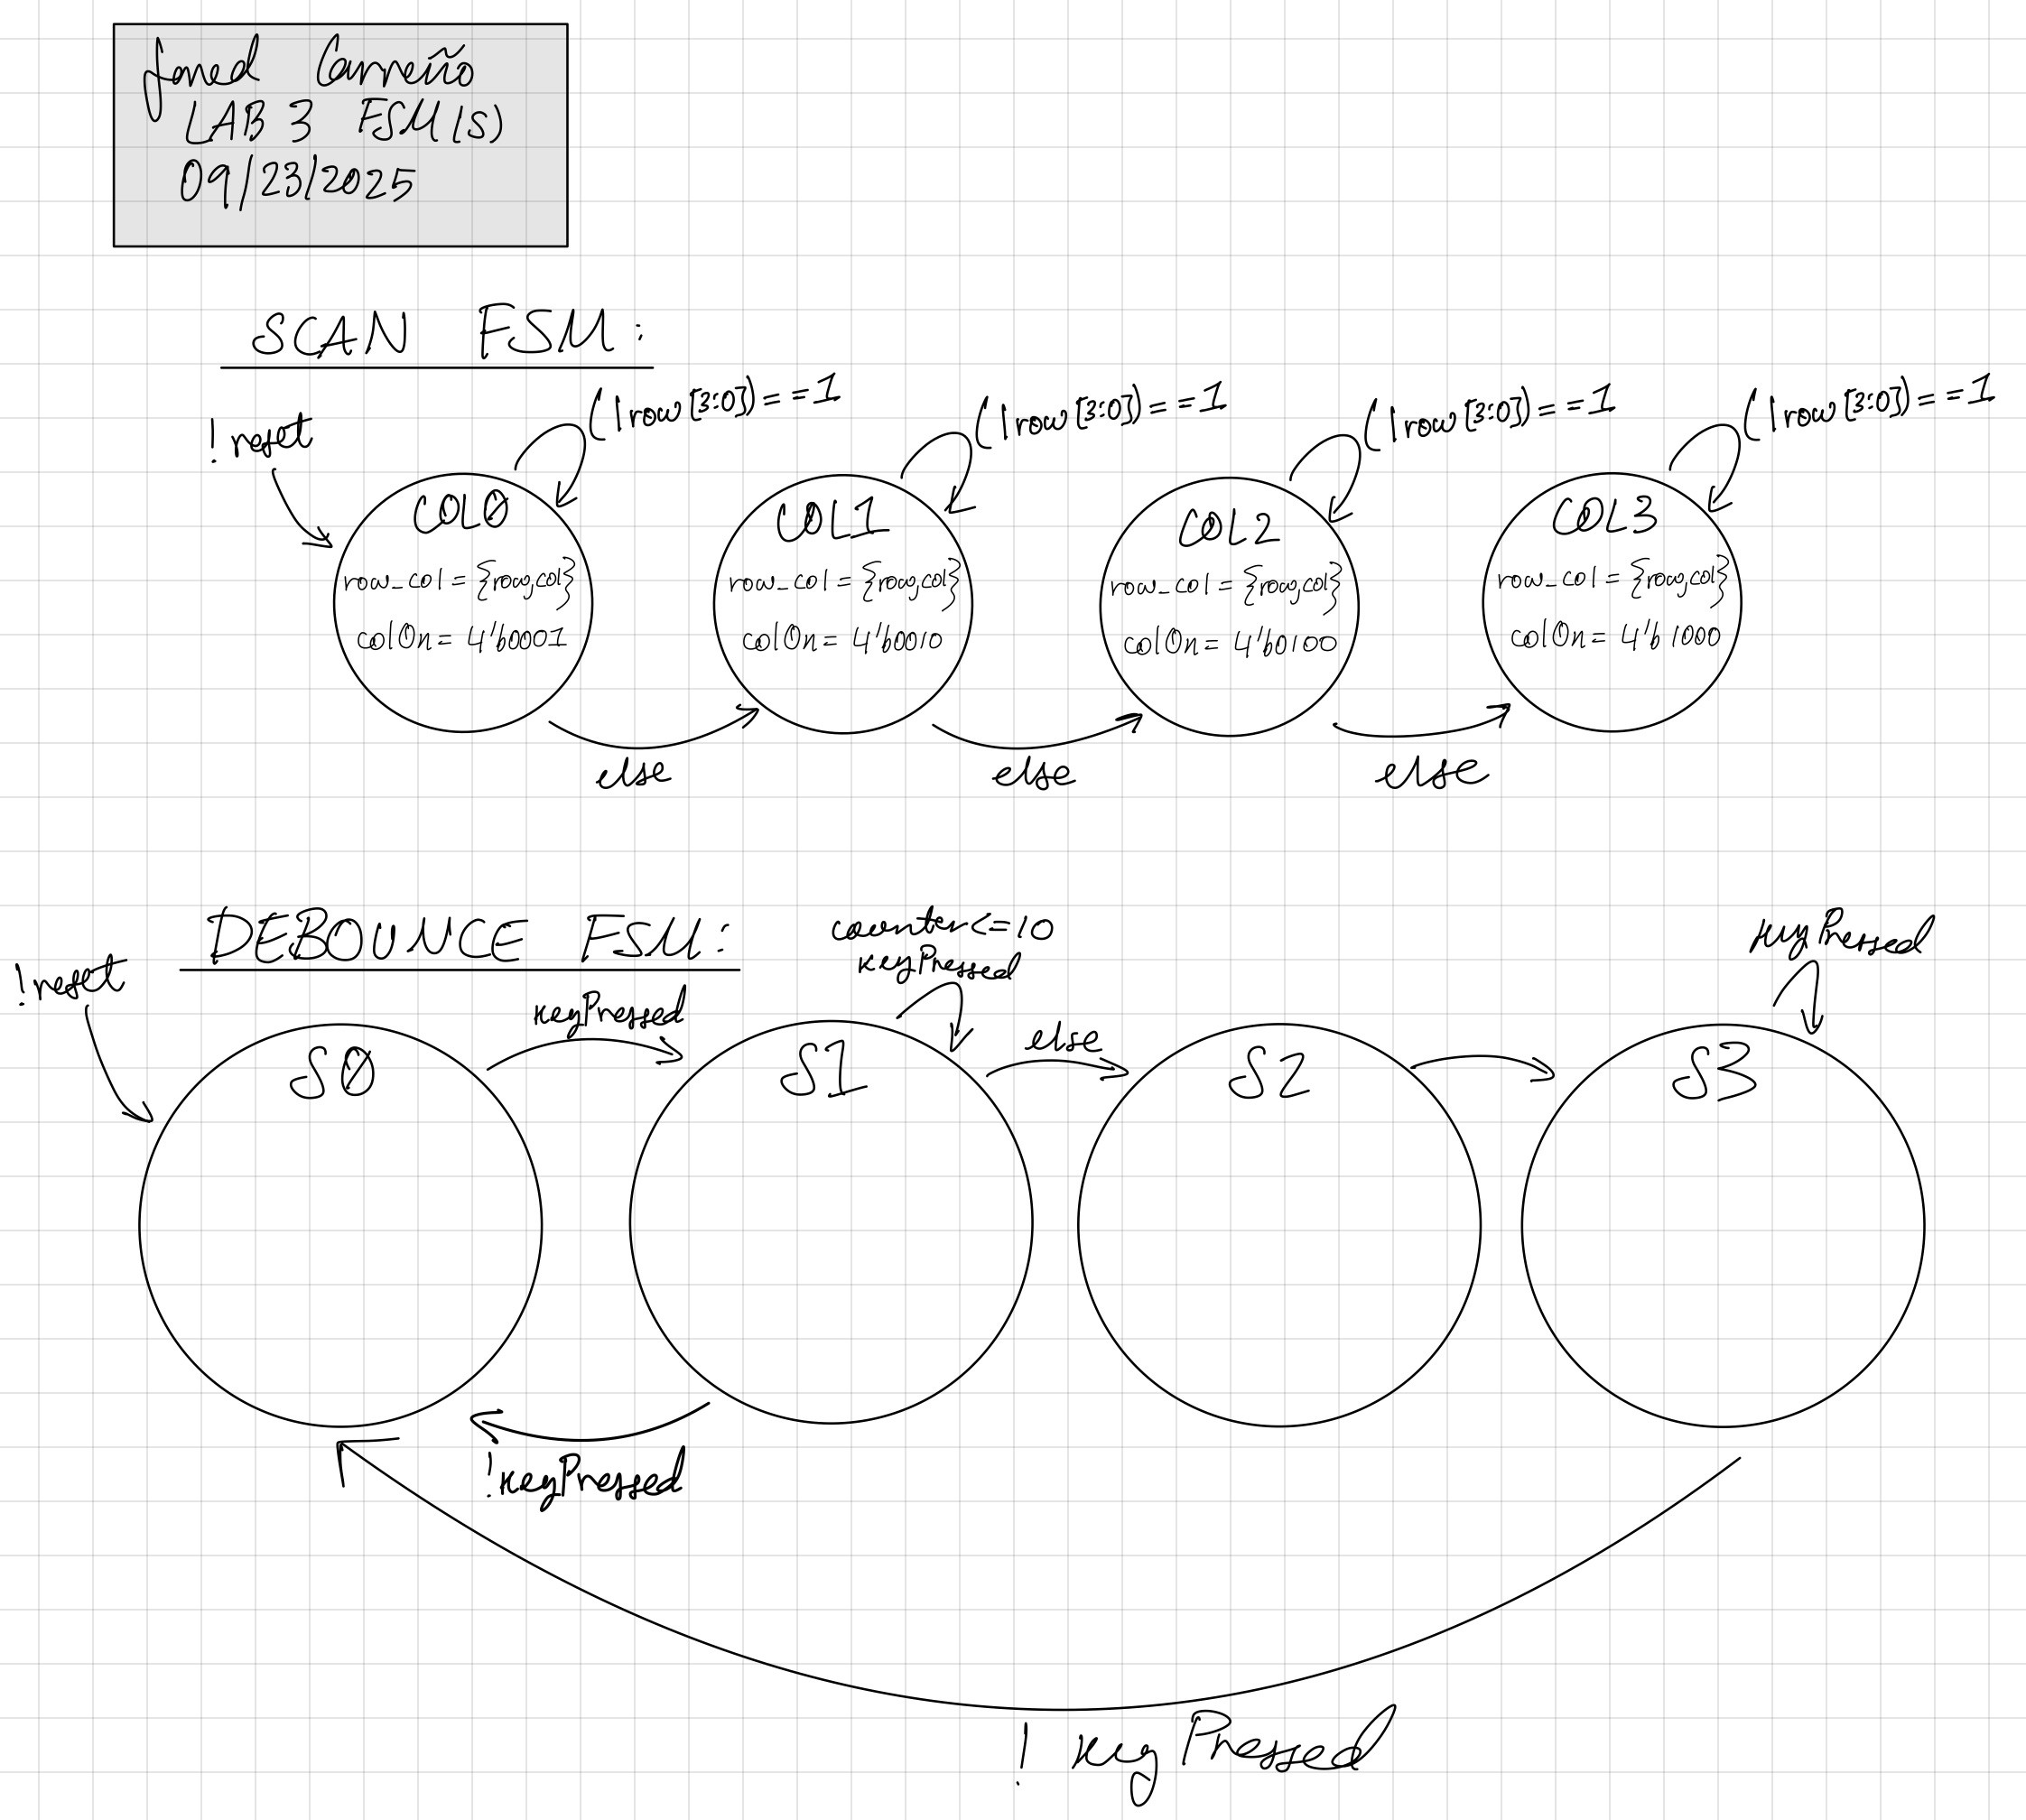 Carreño
LAB 3 FSM(s)
09/23/2025
SCAN FSM:
!reset
(|row[3:0])==1
(|row[3:0])==1
(|row[3:0])==1
(|row[3:0])==1
COL0
row_col = {row,col}
colOn= 4'b0001
COL1
row_col = {row,col}
colOn= 4'b0010
COL2
row_col = {row,col}
colOn= 4'b0100
COL3
row_col = {row,col}
colOn= 4'b1000
else
else
else
DEBOUNCE FSM:
!reset
keyPressed
counter<=10
keyPressed
else
keyPressed
S0
S1
S2
S3
!keyPressed
! keyPressed